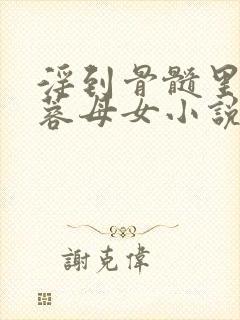 淫到骨髓里
蓉母女小說
謝克偉